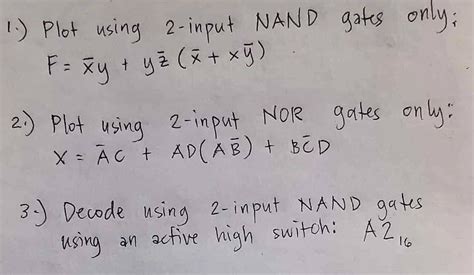 1.) Plot using 2-input NAND gates only:
F = x̄y + yz̄ (x̄ + xȳ)
2.) Plot using 2-input NOR gates only:
X = ĀC + AD(AB̄) + BC̄D
3.) Decode using 2-input NAND gates
using an active high switch: A2₁₆